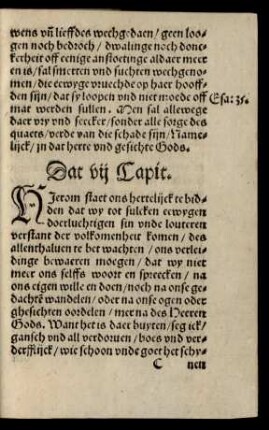 wens vñ lieffdes wechgedaen / geen loo-
gen noch bedroch / dwalinge noch donc-
kerheit off eenige anstoetinge aldaer meer
en is / sal smerten vnd suchten wechgeno-
men / die eewyge vruechde op haer hooff-
den sijn / dat sy loopen vnd niet moede off
Esa: 35.
mat werden sullen. Men sal allewege
daer vry vnd seecker / sonder alle sorge des
quaets / verde van die schade sijn / Name-
lijck / jn dat herte vnd gesichte Gods.
Dat vij Capit.
HIerom staet ons hertelijck te bid-
den dat wy tot sulcken eewygen
doerluchtigen sin vnde louteren
verstant der volkomenheit komen / des
allenthaluen te het wachten / ons verlei-
dinge bewaeren moegen / dat wy niet
meer ons selffs woort en sprecken / na
ons eigen wille en doen / noch na onse ge-
dachtē wandelen / oder na onse ogen oder
ghesichten oordelen / mer na des Heeren
Gods. Want het is daer buyten / seg ick /
gansch vnd all verdoruen / boes vnd ver-
derfflijck / wie schoon vnde goet het schy-
C
nen